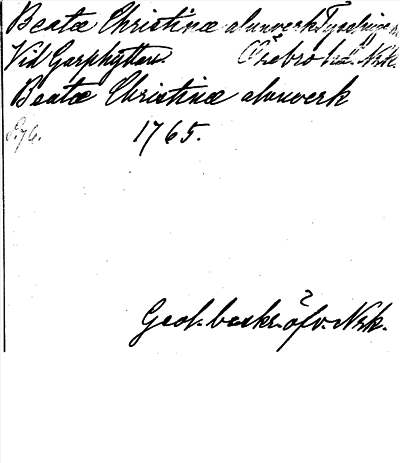 Beatæ Christinæ alunverk Tysslinge sn.
Vid Garphyttan. Örebro hd. Nrk.
Beatæ Christinæ alunverk
S. 76. 1765.
Geol. beskr. öfv. Nrk.